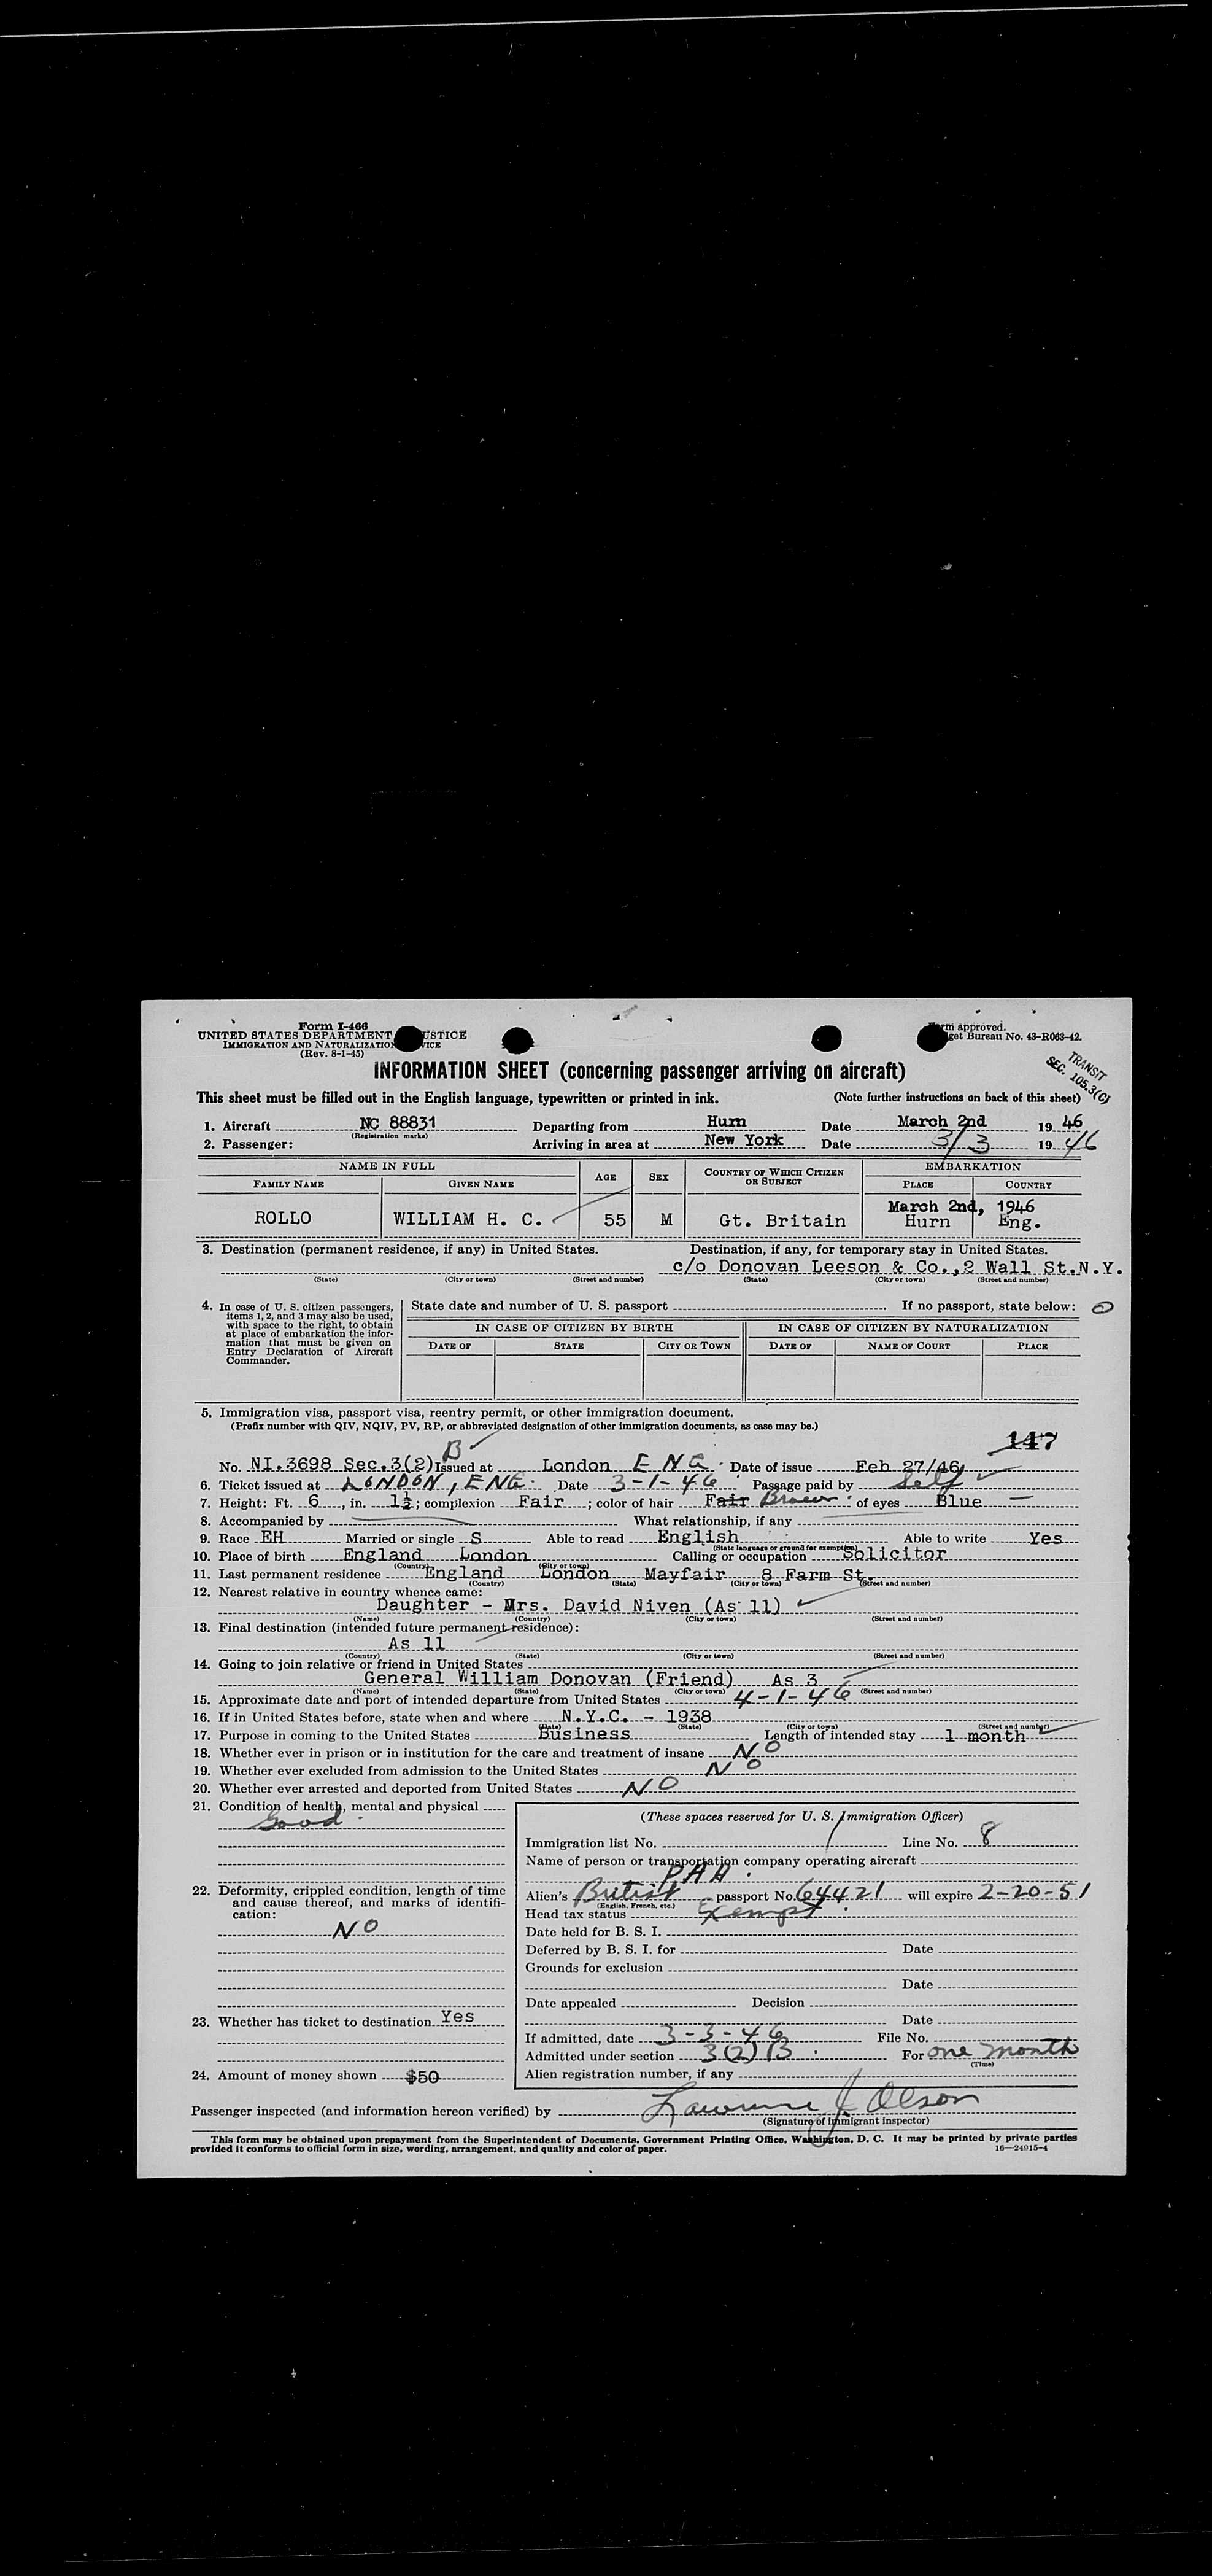 Form I-466
UNITED STATES DEPARTMENT JUSTICE
IMMIGRATION AND NATURALIZATION VICE
(Rev. 8-1-45)
Form approved.
get Bureau No. 43-R063-42.
TRANSIT
SEC. 105.3(C)
INFORMATION SHEET (concerning passenger arriving on aircraft)
This sheet must be filled out in the English language, typewritten or printed in ink. (Note further instructions on back of this sheet)
1. Aircraft NC 88831 Departing from Hurn Date March 2nd 19 46
(Registration marks)
2. Passenger: Arriving in area at New York Date 3/3 19 46
NAME IN FULL AGE SEX COUNTRY OF WHICH CITIZEN OR SUBJECT EMBARKATION
FAMILY NAME GIVEN NAME PLACE COUNTRY
March 2nd, 1946
ROLLO WILLIAM H. C. 55 M Gt. Britain Hurn Eng.
3. Destination (permanent residence, if any) in United States. Destination, if any, for temporary stay in United States.
c/o Donovan Leeson & Co.,2 Wall St.N.Y.
(State) (City or town) (Street and number) (State) (City or town) (Street and number)
4. In case of U. S. citizen passengers, items 1, 2, and 3 may also be used, with space to the right, to obtain at place of embarkation the information that must be given on Entry Declaration of Aircraft Commander.
State date and number of U. S. passport If no passport, state below: 0
IN CASE OF CITIZEN BY BIRTH IN CASE OF CITIZEN BY NATURALIZATION
DATE OF STATE CITY OR TOWN DATE OF NAME OF COURT PLACE
5. Immigration visa, passport visa, reentry permit, or other immigration document.
(Prefix number with QIV, NQIV, PV, RP, or abbreviated designation of other immigration documents, as case may be.)
147
No. NI.3698 Sec.3(2) B Issued at London ENG. Date of issue Feb 27/46
6. Ticket issued at LONDON, ENG. Date 3-1-46 Passage paid by Self
7. Height: Ft. 6, in. 1½; complexion Fair; color of hair Fair Brown: of eyes Blue
8. Accompanied by What relationship, if any
9. Race EH Married or single S Able to read English Able to write Yes
(State language or ground for exemption)
10. Place of birth England London Calling or occupation Solicitor
(Country) (City or town)
11. Last permanent residence England London Mayfair 8 Farm St.
(Country) (State) (City or town) (Street and number)
12. Nearest relative in country whence came:
Daughter - Mrs. David Niven (As 11)
(Name) (Country) (City or town) (Street and number)
13. Final destination (intended future permanent residence):
As 11
(Country) (State) (City or town) (Street and number)
14. Going to join relative or friend in United States
General William Donovan (Friend) As 3
(Name) (State) (City or town) (Street and number)
15. Approximate date and port of intended departure from United States 4-1-46
16. If in United States before, state when and where N.Y.C. - 1938
(Date) (State) (City or town) (Street and number)
17. Purpose in coming to the United States Business Length of intended stay 1 month
18. Whether ever in prison or in institution for the care and treatment of insane NO
19. Whether ever excluded from admission to the United States NO
20. Whether ever arrested and deported from United States NO
21. Condition of health, mental and physical
Good.
22. Deformity, crippled condition, length of time and cause thereof, and marks of identification:
NO
23. Whether has ticket to destination Yes
24. Amount of money shown $50
(These spaces reserved for U. S. Immigration Officer)
Immigration list No. 1 Line No. 8
Name of person or transportation company operating aircraft
PAA.
Alien's British passport No. 64421 will expire 2-20-51
(English, French, etc.)
Head tax status Exempt.
Date held for B. S. I.
Deferred by B. S. I. for Date
Grounds for exclusion
Date
Date appealed Decision
Date
If admitted, date 3-3-46 File No.
Admitted under section 3(2)B. For one month
(Time)
Alien registration number, if any
Passenger inspected (and information hereon verified) by Lawrence J Olson
(Signature of immigrant inspector)
This form may be obtained upon prepayment from the Superintendent of Documents, Government Printing Office, Washington, D. C. It may be printed by private parties
provided it conforms to official form in size, wording, arrangement, and quality and color of paper. 16—24915-4